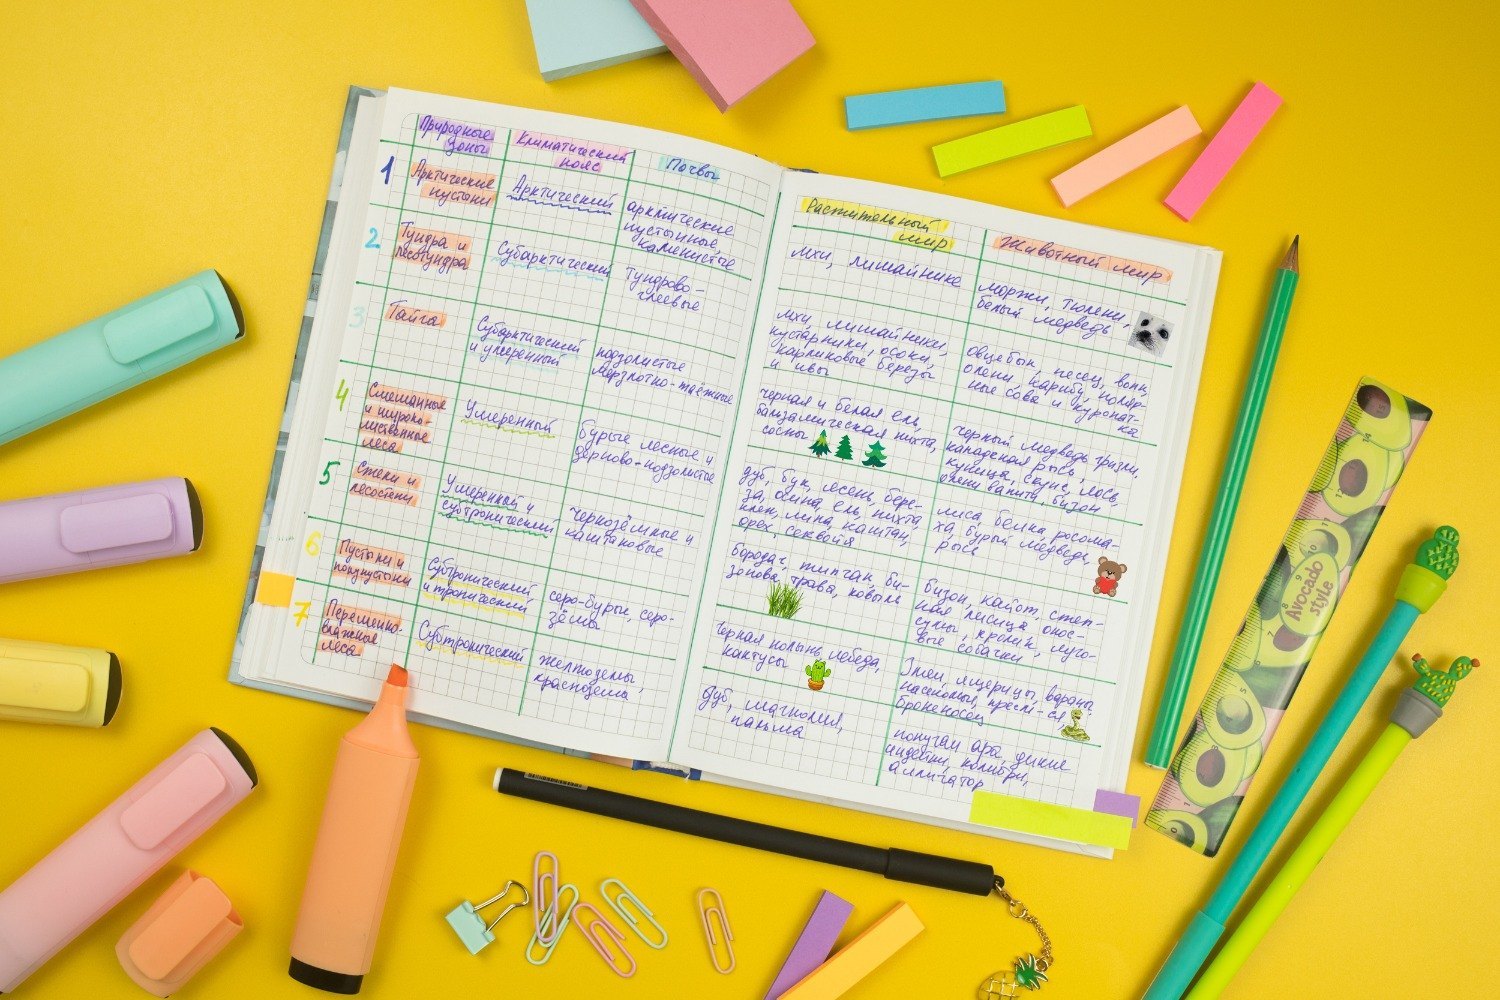 Природные
зоны
Климатический
пояс
Почвы
1
Арктические
пустыни
Арктический
арктические
пустынные,
каменистые
2
Тундра и
лесотундра
Субарктический
тундрово-
глеевые
3
Тайга
Субарктический
и умеренный
подзолистые
мерзлотно-таёжные
4
Смешанные
и широко-
лиственные
леса
Умеренный
бурые лесные и
дерново-подзолистые
5
Степи и
лесостепи
Умеренный и
субтропический
чернозёмные и
каштановые
6
Пустыни и
полупустыни
Субтропический
и тропический
серо-бурые, серо-
зёмы
7
Переменно-
влажные
леса
Субтропический
желтозёмы,
краснозёмы
Растительный
мир
Животный мир
мхи, лишайники
моржи, тюлени,
белый медведь
мхи, лишайники,
кустарники, осоки,
карликовые берёзы
и ивы
овцебык, песец, волк,
олени, карибу, поляр-
ные сова и куропат-
ка
черная и белая ель,
бальзамическая пихта,
сосны
черный медведь гризли,
канадская рысь,
куница, скунс, лось,
олени вапити, бизон
дуб, бук, ясень, бере-
за, осина, ель, пихта
клен, липа, каштан,
орех, секвойя
лиса, белка, росома-
ха, бурый медведь,
рысь
бородач, типчак, би-
зонова трава, ковыль
бизон, койот, степ-
ная лисица,
кролик, луго-
вые собачки
черная полынь, лебеда,
кактусы
Змеи, ящерицы, вараны
насекомые,
броненосец
дуб, магнолия,
пальма
попугаи ара, дикие
индейки, колибри,
аллигатор
Avocado
style